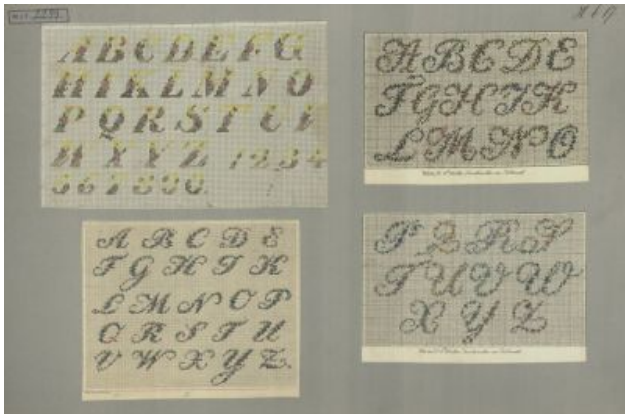 A B C D E F G
H I K L M N O
P Q R S T U V
W X Y Z 1 2 3 4
5 6 7 8 9 0.
A B C D E
F G H I K
L M N O P
Q R S T U
V W X Y Z.
A B C D E
F G H I K
L M N O
P Q R S
T U V W
X Y Z